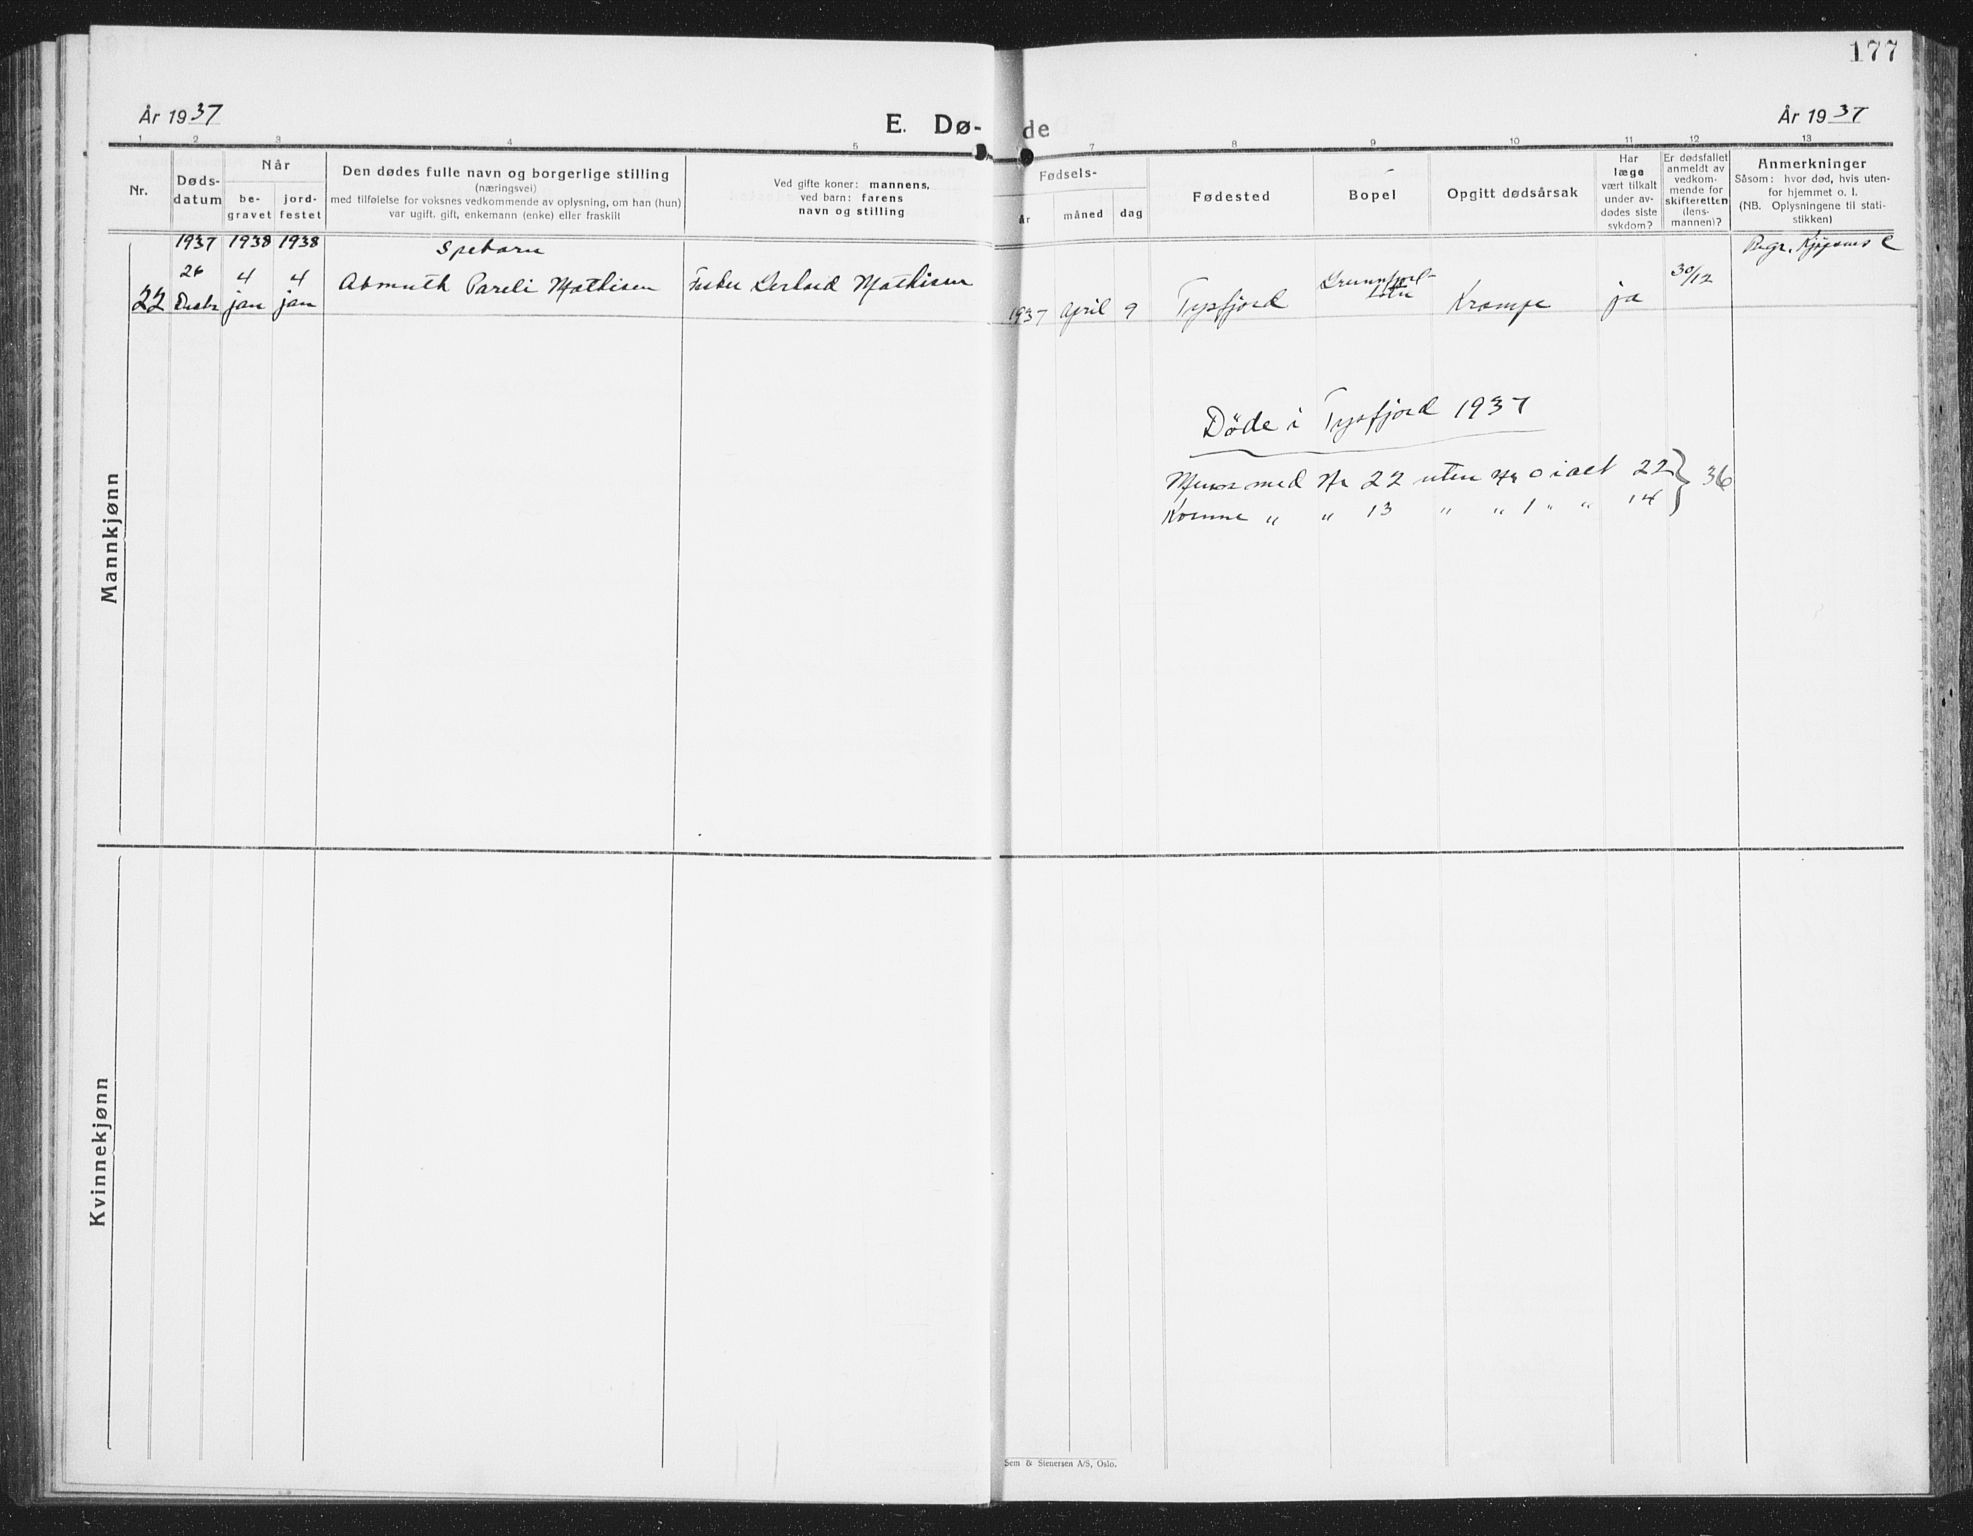 177
År 1937
E. Dø- de
År 1937
1 2 3 4 5 7 8 9 10 11 12 13
Nr.
Døds-
datum
Når
be-
gravet
jord-
festet
Den dødes fulle navn og borgerlige stilling
(næringsvei)
med tilføielse for voksnes vedkommende av oplysning, om han (hun)
var ugift, gift, enkemann (enke) eller fraskilt
Ved gifte koner: mannens,
ved barn: farens
navn og stilling
Fødsels-
år
måned
dag
Fødested
Bopel
Opgitt dødsårsak
Har
læge
vært tilkalt
under av-
dødes siste
sykdom?
Er dødsfallet
anmeldt av
vedkom-
mende for
skifteretten
(lens-
mannen)?
Anmerkninger
Såsom: hvor død, hvis uten-
for hjemmet o. l.
(NB. Oplysningene til stati-
stikken)
1937 1938 1938 Spebarn Begr. Kjøpsnes
26 4 4 Pareli Mathisen Fisker Mathisen 30/12
22 jan jan 1937 April 9 Tysfjord Krampe ja
Døde i Tysfjord 1937
Menn med Nr 22 uten Nr 0 i alt 22 } 36
Kvinne " " 13 " " 1 " " 14
Mannkjønn
Kvinnekjønn
Sem & Stenersen A/S, Oslo.